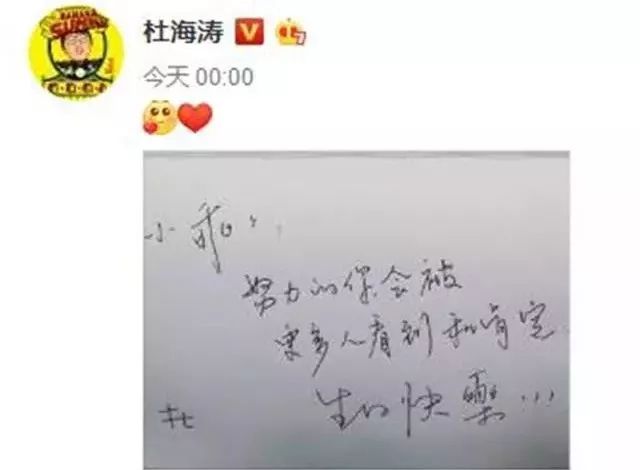 杜海涛
今天 00:00
小乖:
努力的你会被
更多人看到和肯定
生日快乐...